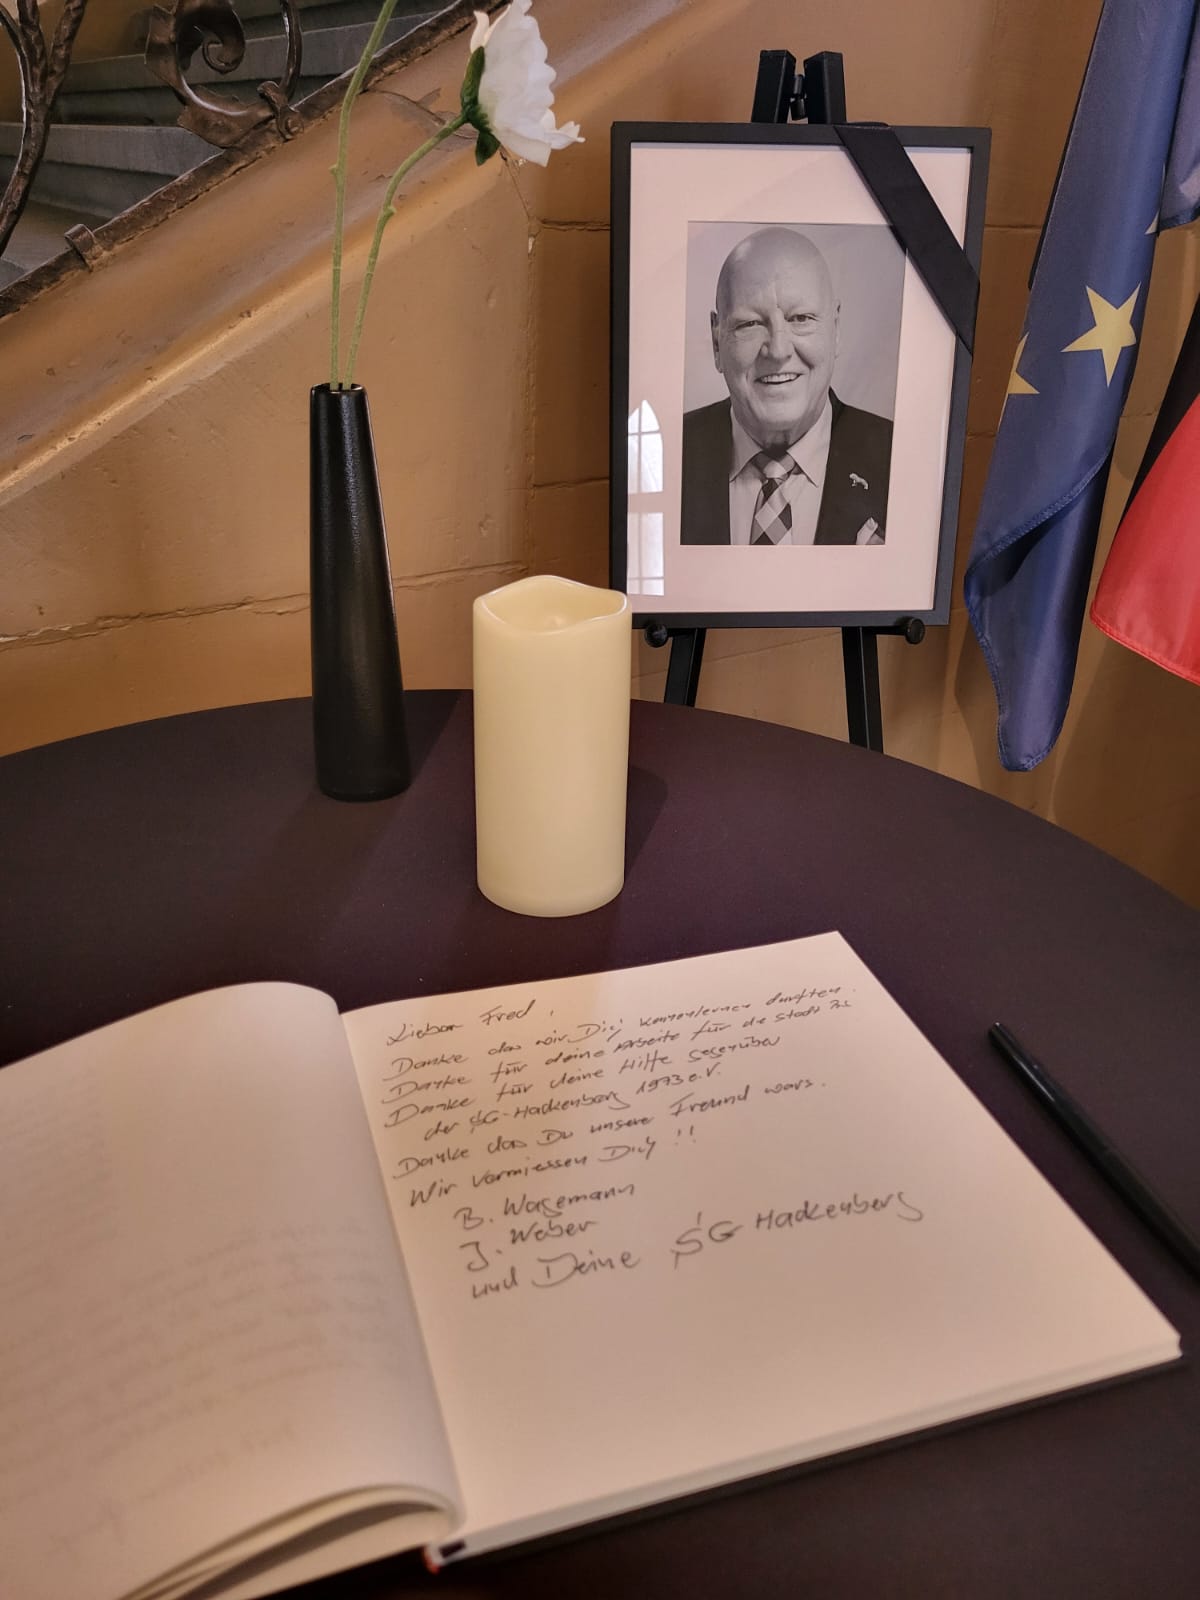 Lieber Fred,
Danke das wir Dich kennenlernen durften.
Danke für deine Arbeite für die Stadt PS
Danke für deine Hilfe gegenüber
der SG-Hackenberg 1973 e.V.
Danke das Du unsere Freund wars.
Wir vermiessen Dich !!
B. Wagemann
J. Weber
und Deine SG Hackenberg